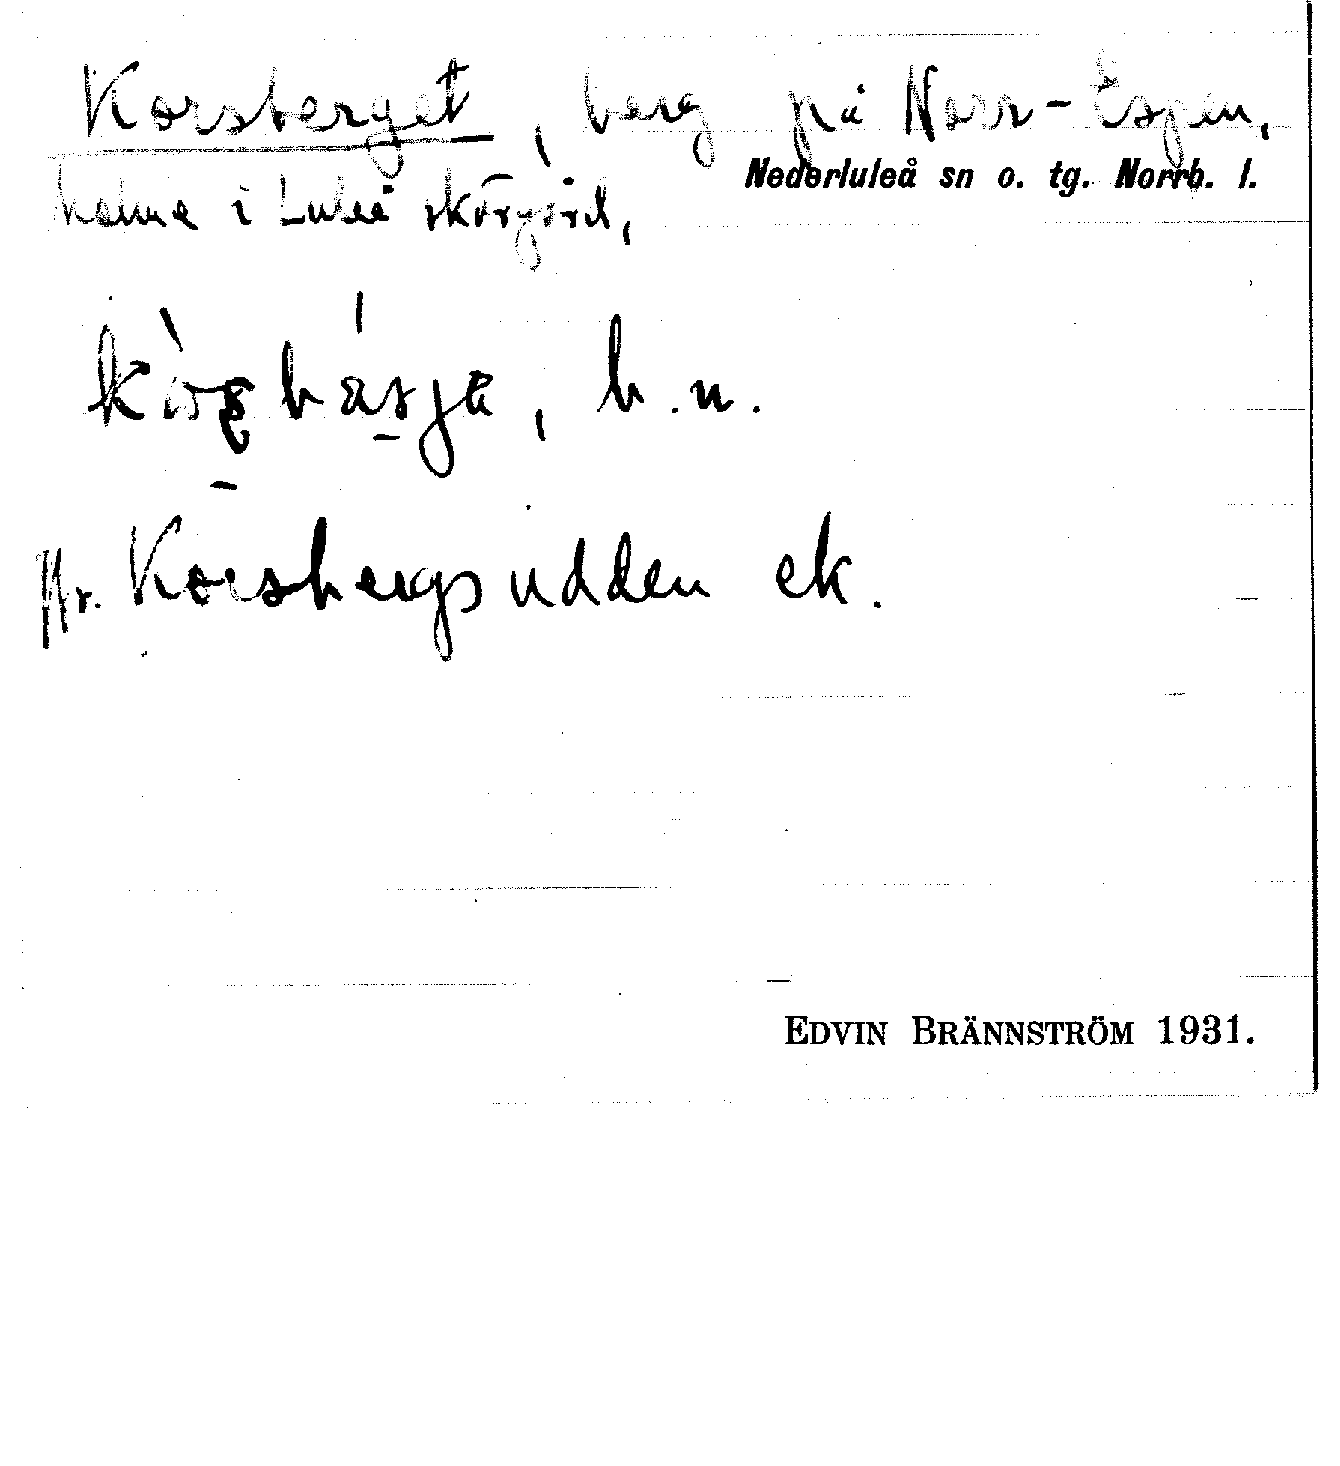 Korsberget, berg på Norr-Espen,
Nederluleå sn o. tg. Norrb. l.
holme i Luleå skärgård,
b.n.
Nr. Korsbergsudden ek.
EDVIN BRÄNNSTRÖM 1931.